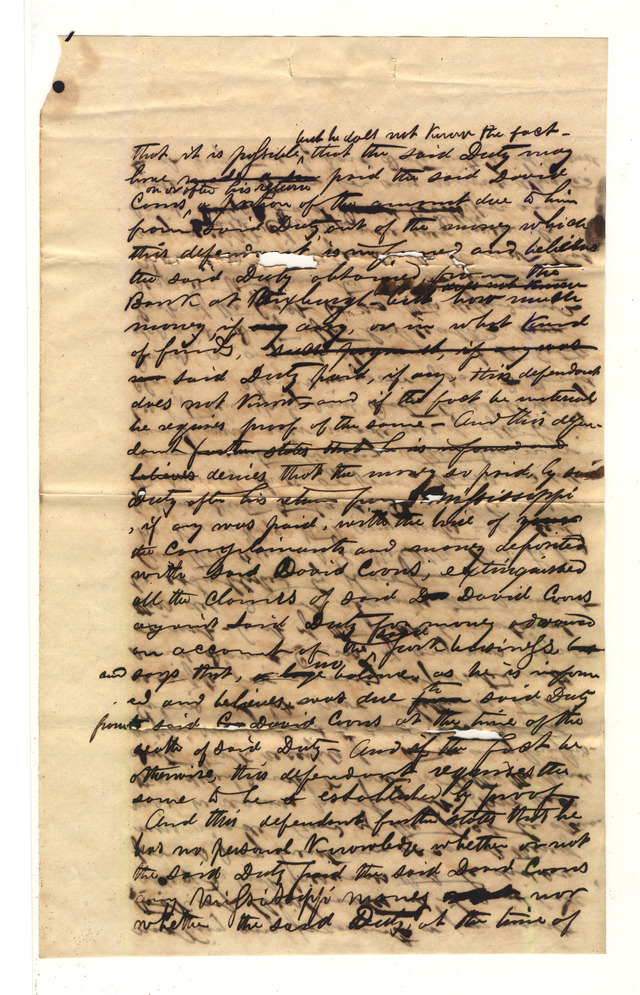 but he does not know the fact-
that it is possible, that the said Duty may
have made a paid the said David
on or after his return
Coons a portion of the amount due to him
from said Duty out of the money which
this defendant is informed and believes
the said Duty obtained from the
does not know
Bank at Vixburgh - but how much
money, if any, or in what kind
of funds, such payment, if any was
said Duty paid, if any, this defendant
does not know - and if the fact be material
he requires proof of the same - And this defen-
dant further states that he is informed and
believes denies that the money so paid, by said
Duty after his return from Mississippi
, if any was paid, with the hire of
the complainants and money deposited
with said David Coons, extinguished
all the claims of said D David Coons
against said Duty for money advanced
on account of the pork business, but
and says that, a large no balance, as he is inform
ed and believes, was due from said Duty
from to said Co David Coons at the time of the
death of said Duty - And if the fact be
otherwise, this defendant requires the
same to be established by proof
And this defendant further states that he
has no personal knowledge whether or not
the said Duty paid the said David Coons
any Mississippi money nor
whether the said Duty, at the time of